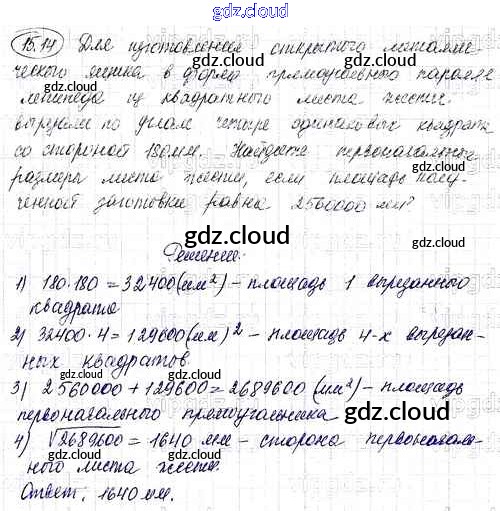 gdz.cloud
15.14 Для изготовления открытого металли-
ческого ящика в форме прямоугольного паралле-
лепипеда из квадратного листа жести
вырезали по углам четыре одинаковых квадрата
со стороной 180 мм. Найдите первоначальные
размеры листа жести, если площадь полу-
ченной заготовки равна 2560000 мм²
gdz.cloud
Решение:
1) 180·180=32400(мм²) – площадь 1 вырезанного
квадрата
2) 32400·4=129600(мм)² – площадь 4-х вырезан-
ных квадратов.
3) 2560000+129600=2689600 (мм²) – площадь
первоначального прямоугольника
4) √2689600=1640 мм – сторона первоначаль-
ного листа жести.
Ответ: 1640 мм.
gdz.cloud